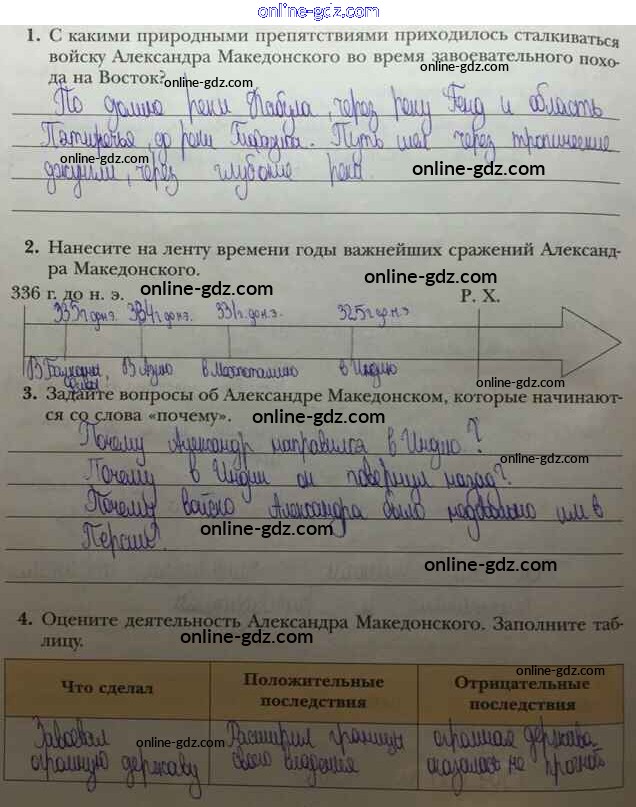 online-gdz.com
1. С какими природными препятствиями приходилось сталкиваться
войску Александра Македонского во время завоевательного похо-
да на Восток?
online-gdz.com
По долине реки Кабула, через реку Гинд и область
Пятиречья, до реки Теперь шел через тропические
online-gdz.com
джунгли, через глубокие реки
online-gdz.com
2. Нанесите на ленту времени годы важнейших сражений Александ-
ра Македонского.
online-gdz.com
336 г. до н. э.
online-gdz.com
Р. Х.
335г до н.э. 334г до н.э. 331г. до н.э. 325г до н.э
В Балканы, Фивы В Азию в Месопотамию в Индию
3. Задайте вопросы об Александре Македонском, которые начинают-
ся со слова «почему».
online-gdz.com
Почему Александр направился в Индию?
online-gdz.com
Почему в Индии он повернул назад?
Почему войско Александра было недовольно им в
online-gdz.com
Персии?
online-gdz.com
4. Оцените деятельность Александра Македонского. Заполните таб-
лицу.
online-gdz.com
Что сделал
Положительные
последствия
online-gdz.com
Отрицательные
последствия
Завоевал
огромную державу
online-gdz.com
Расширил границы
своего владения
огромная держава
оказалась не прочной
online-gdz.com